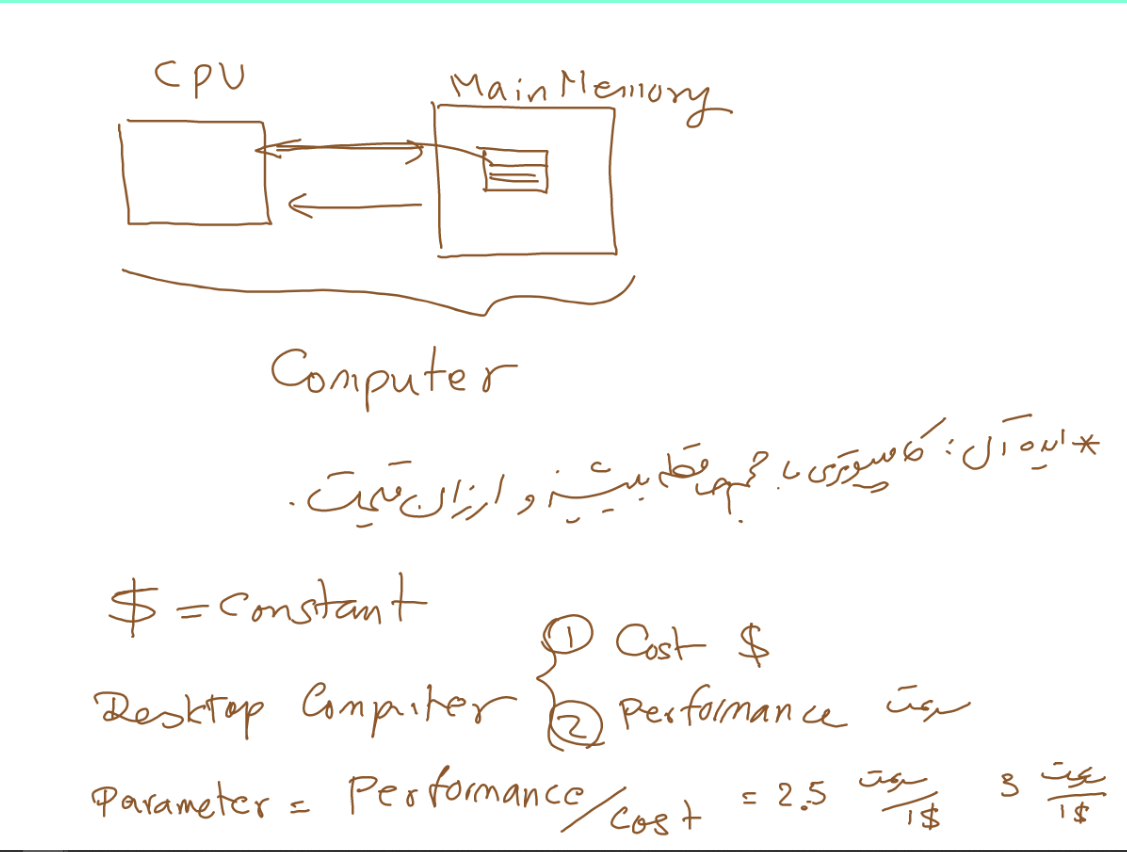 CPU
Main Memory
Computer
* ایده آل : کامپیوتری با حجم حافظه بیشینه و ارزان قیمت .
$ = Constant
Desktop Computer { ① Cost $
② Performance سرعت
Parameter = Performance/Cost = 2.5 سرعت/1$ 3 سرعت/1$